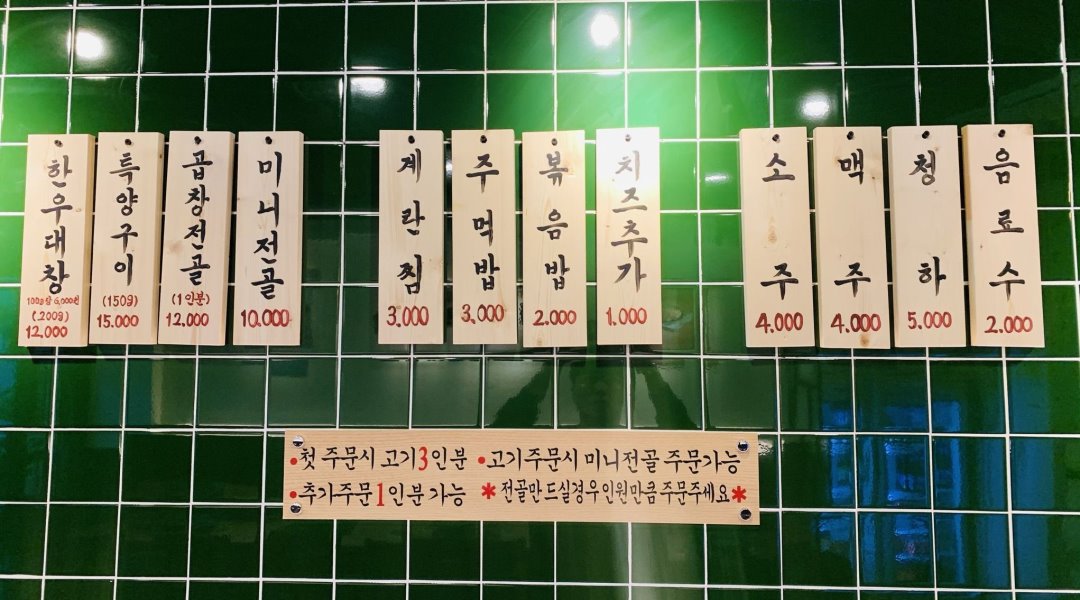 한우대창
100g당 6,000원
(200g)
12.000
특양구이
(150g)
15.000
곱창전골
(1인분)
12.000
미니전골
10.000
계란찜
3.000
주먹밥
3.000
볶음밥
2.000
치즈추가
1.000
소주
4.000
맥주
4.000
청하
5.000
음료수
2.000
•첫 주문시 고기3인분 •고기주문시 미니전골 주문가능
•추가주문1인분 가능 *전골만 드실경우 인원만큼 주문주세요*